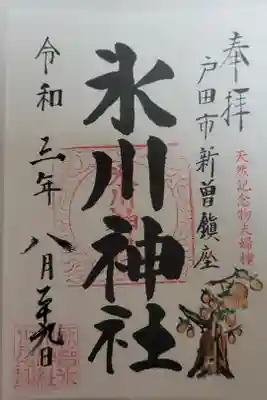 奉拝
戸田市新曽鎮座
天然記念物夫婦樟
氷川神社
令和三年八月二十九日